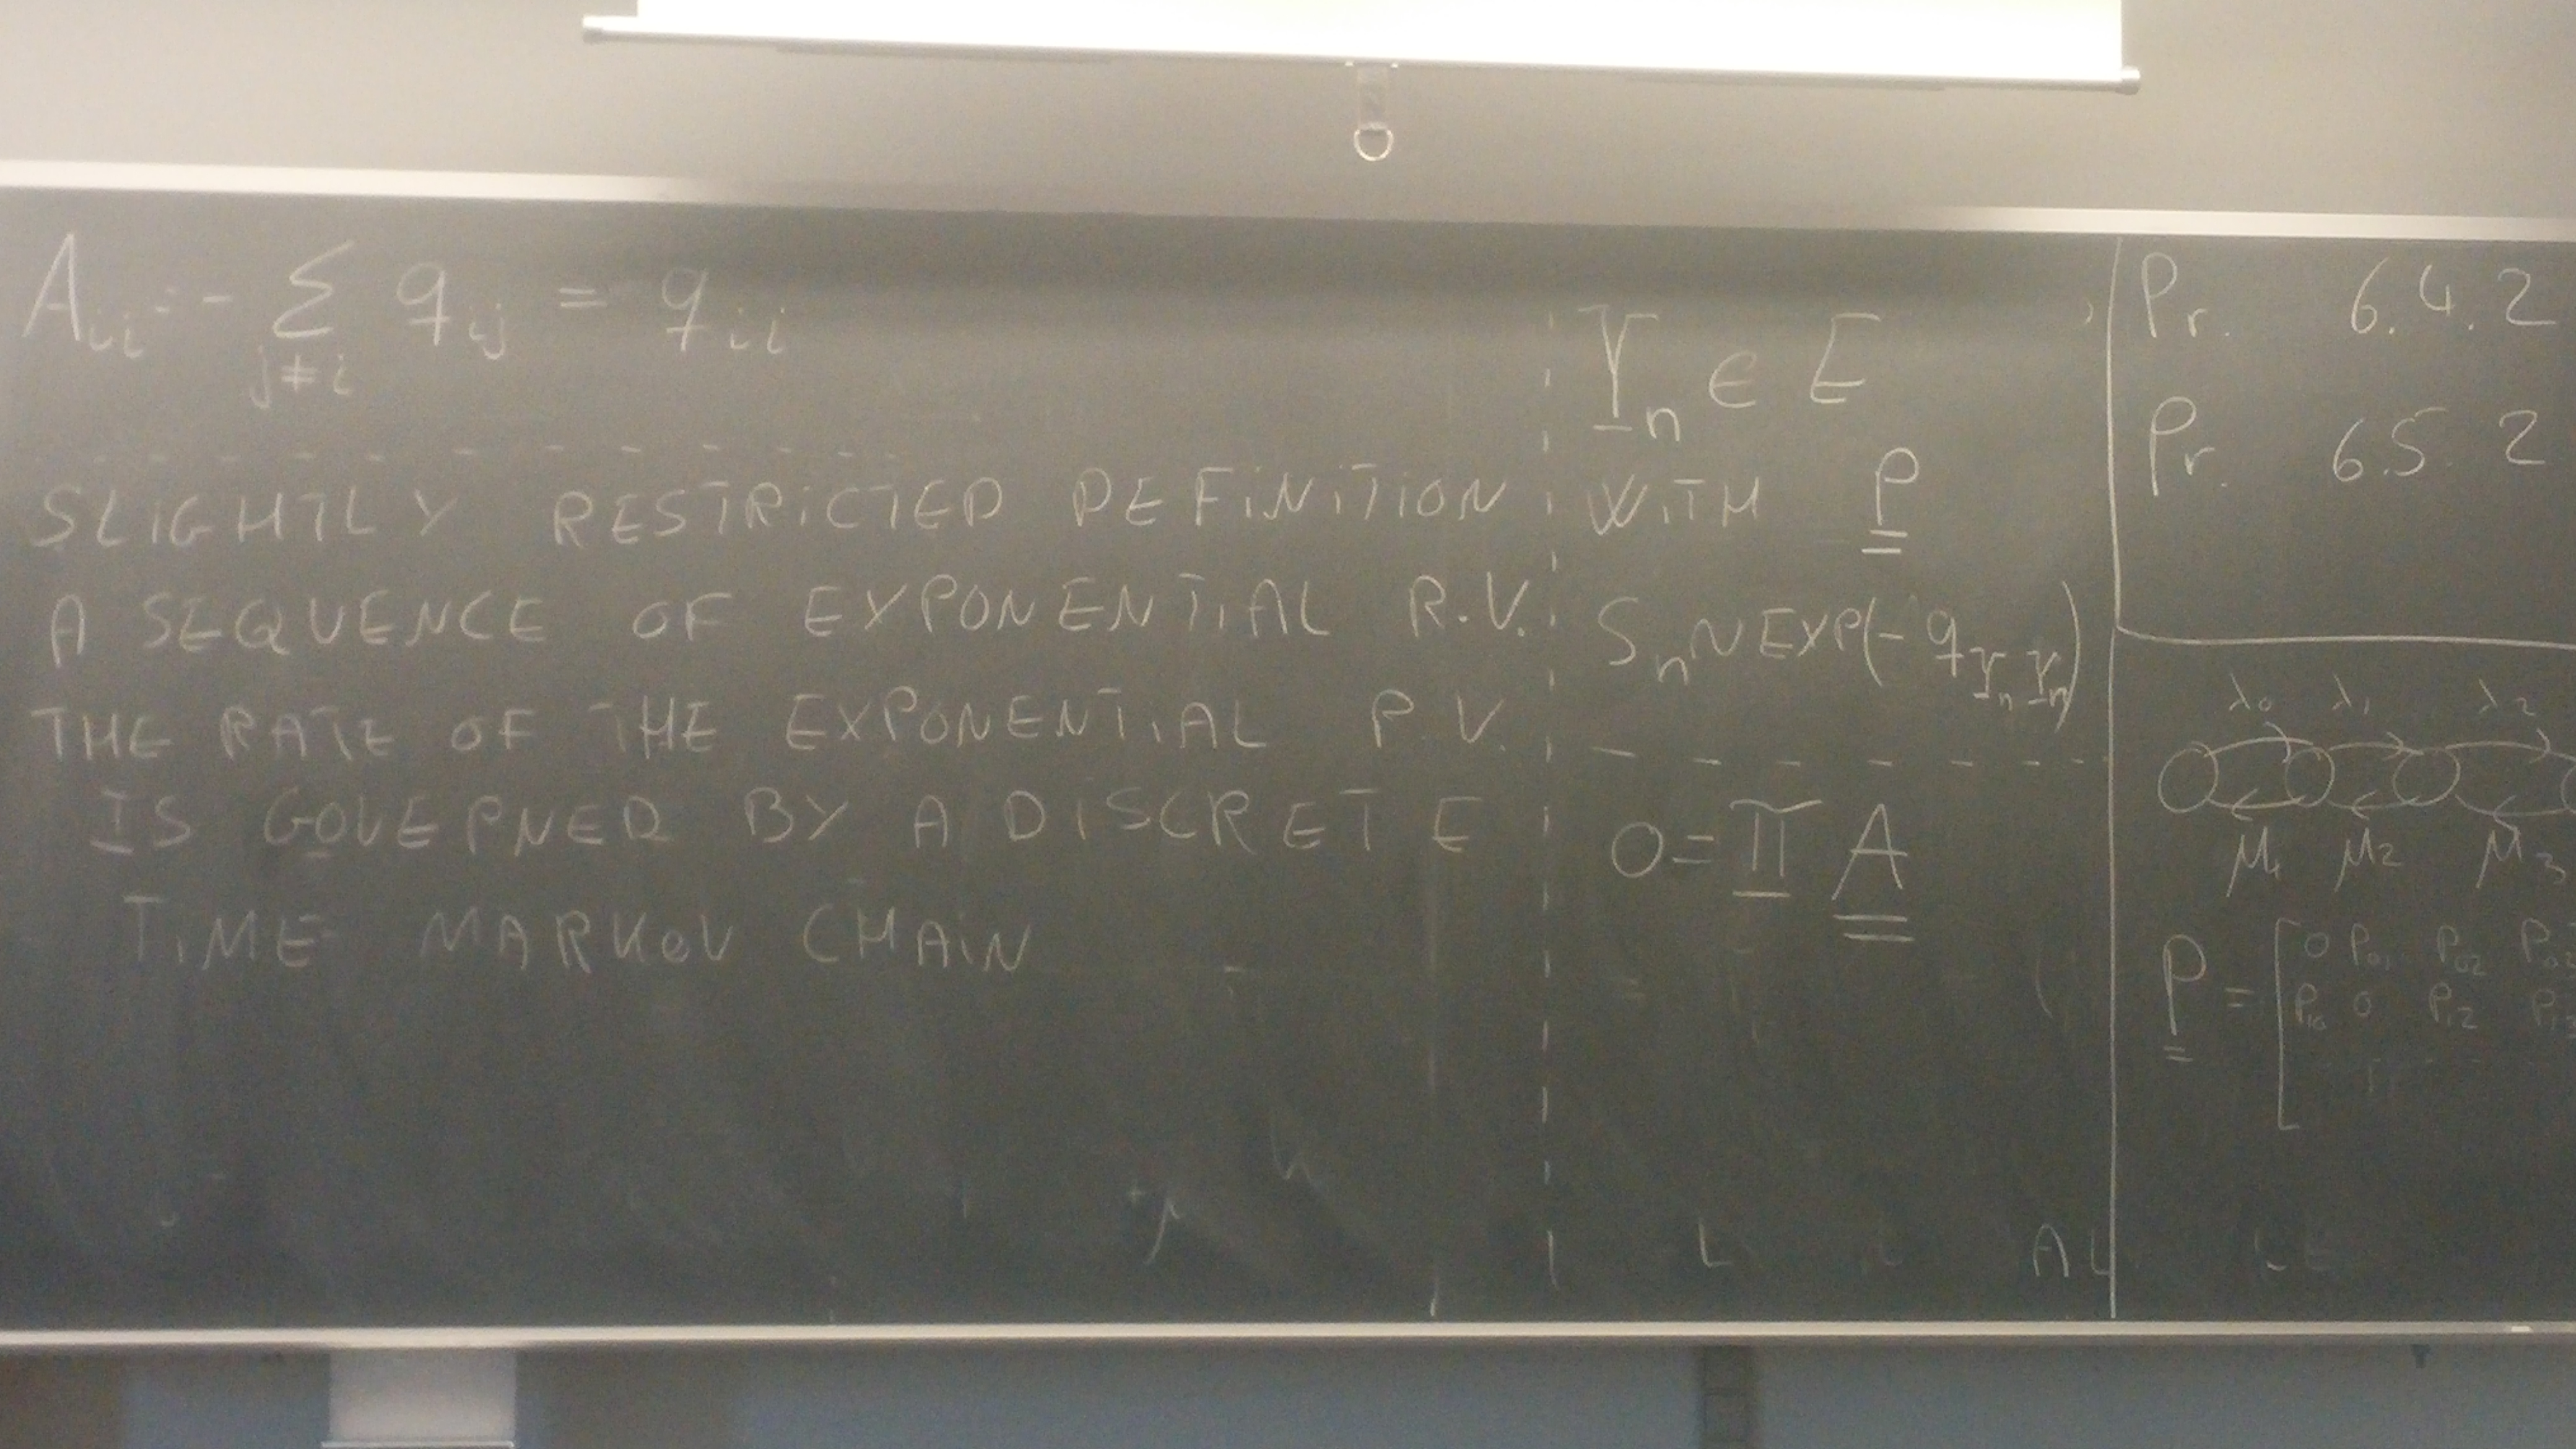 A_ii = - Σ_{j≠i} q_ij = q_ii
SLIGHTLY RESTRICTED DEFINITION
A SEQUENCE OF EXPONENTIAL R.V.
THE RATE OF THE EXPONENTIAL R.V.
IS GOVERNED BY A DISCRETE
TIME MARKOV CHAIN
Y_n ∈ E
WITH P
S_n ~ EXP(-q_{Y_n Y_n})
0 = π A
Pr. 6.4.2
Pr. 6.5.2
λ_0 λ_1 λ_2
μ_1 μ_2 μ_3
P = [ 0 P_01 P_02
P_10 0 P_12